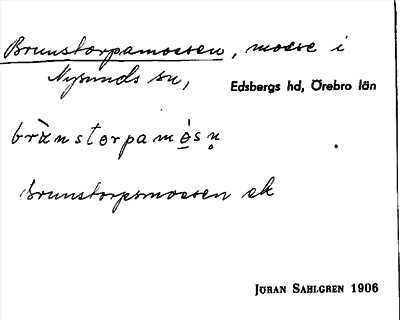 Brunstorpamossen, mosse i
Nysunds sn,
Edsbergs hd, Örebro län
brùnstorpamósn
Brunstorpsmossen ek
JÖRAN SAHLGREN 1906